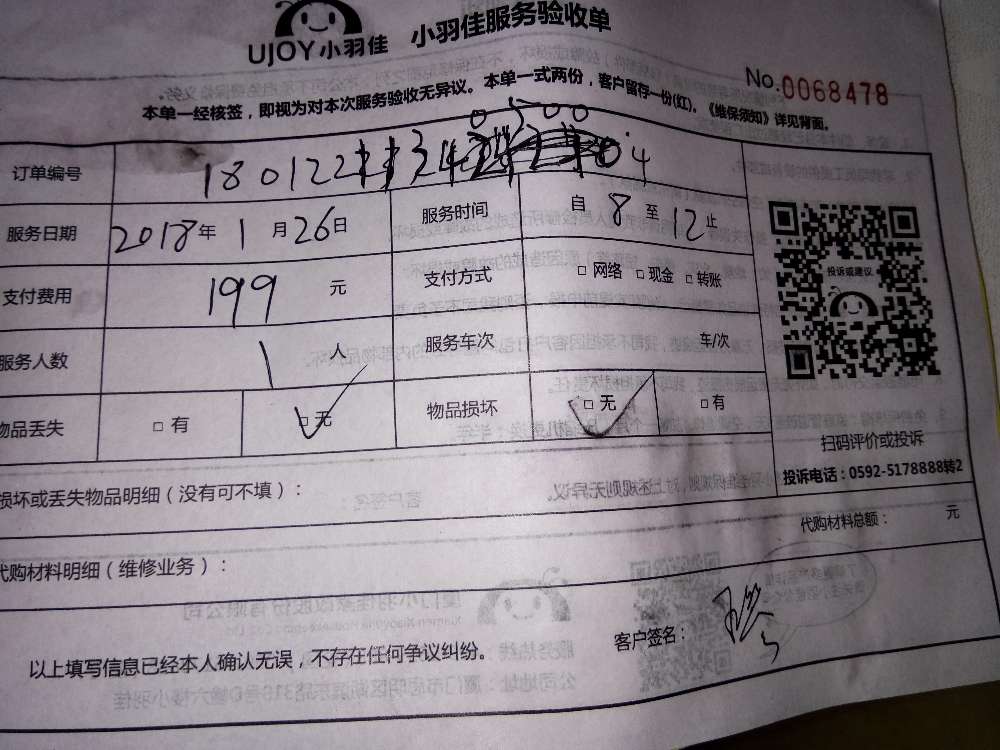 UJOY小羽佳 小羽佳服务验收单
No.0068478
本单一经核签，即视为对本次服务验收无异议。本单一式两份，客户留存一份(红)。《维保须知》详见背面。
订单编号 180122
服务日期 2018年1月26日 服务时间 自8至12止
支付费用 199元 支付方式 □网络 □现金 □转账
服务人数 1人 服务车次 车/次
物品丢失 □有 □无 物品损坏 □无 □有
投诉或建议
扫码评价或投诉
投诉电话：0592-5178888转2
损坏或丢失物品明细（没有可不填）：
代购材料总额： 元
代购材料明细（维修业务）：
以上填写信息已经本人确认无误，不存在任何争议纠纷。
客户签名：